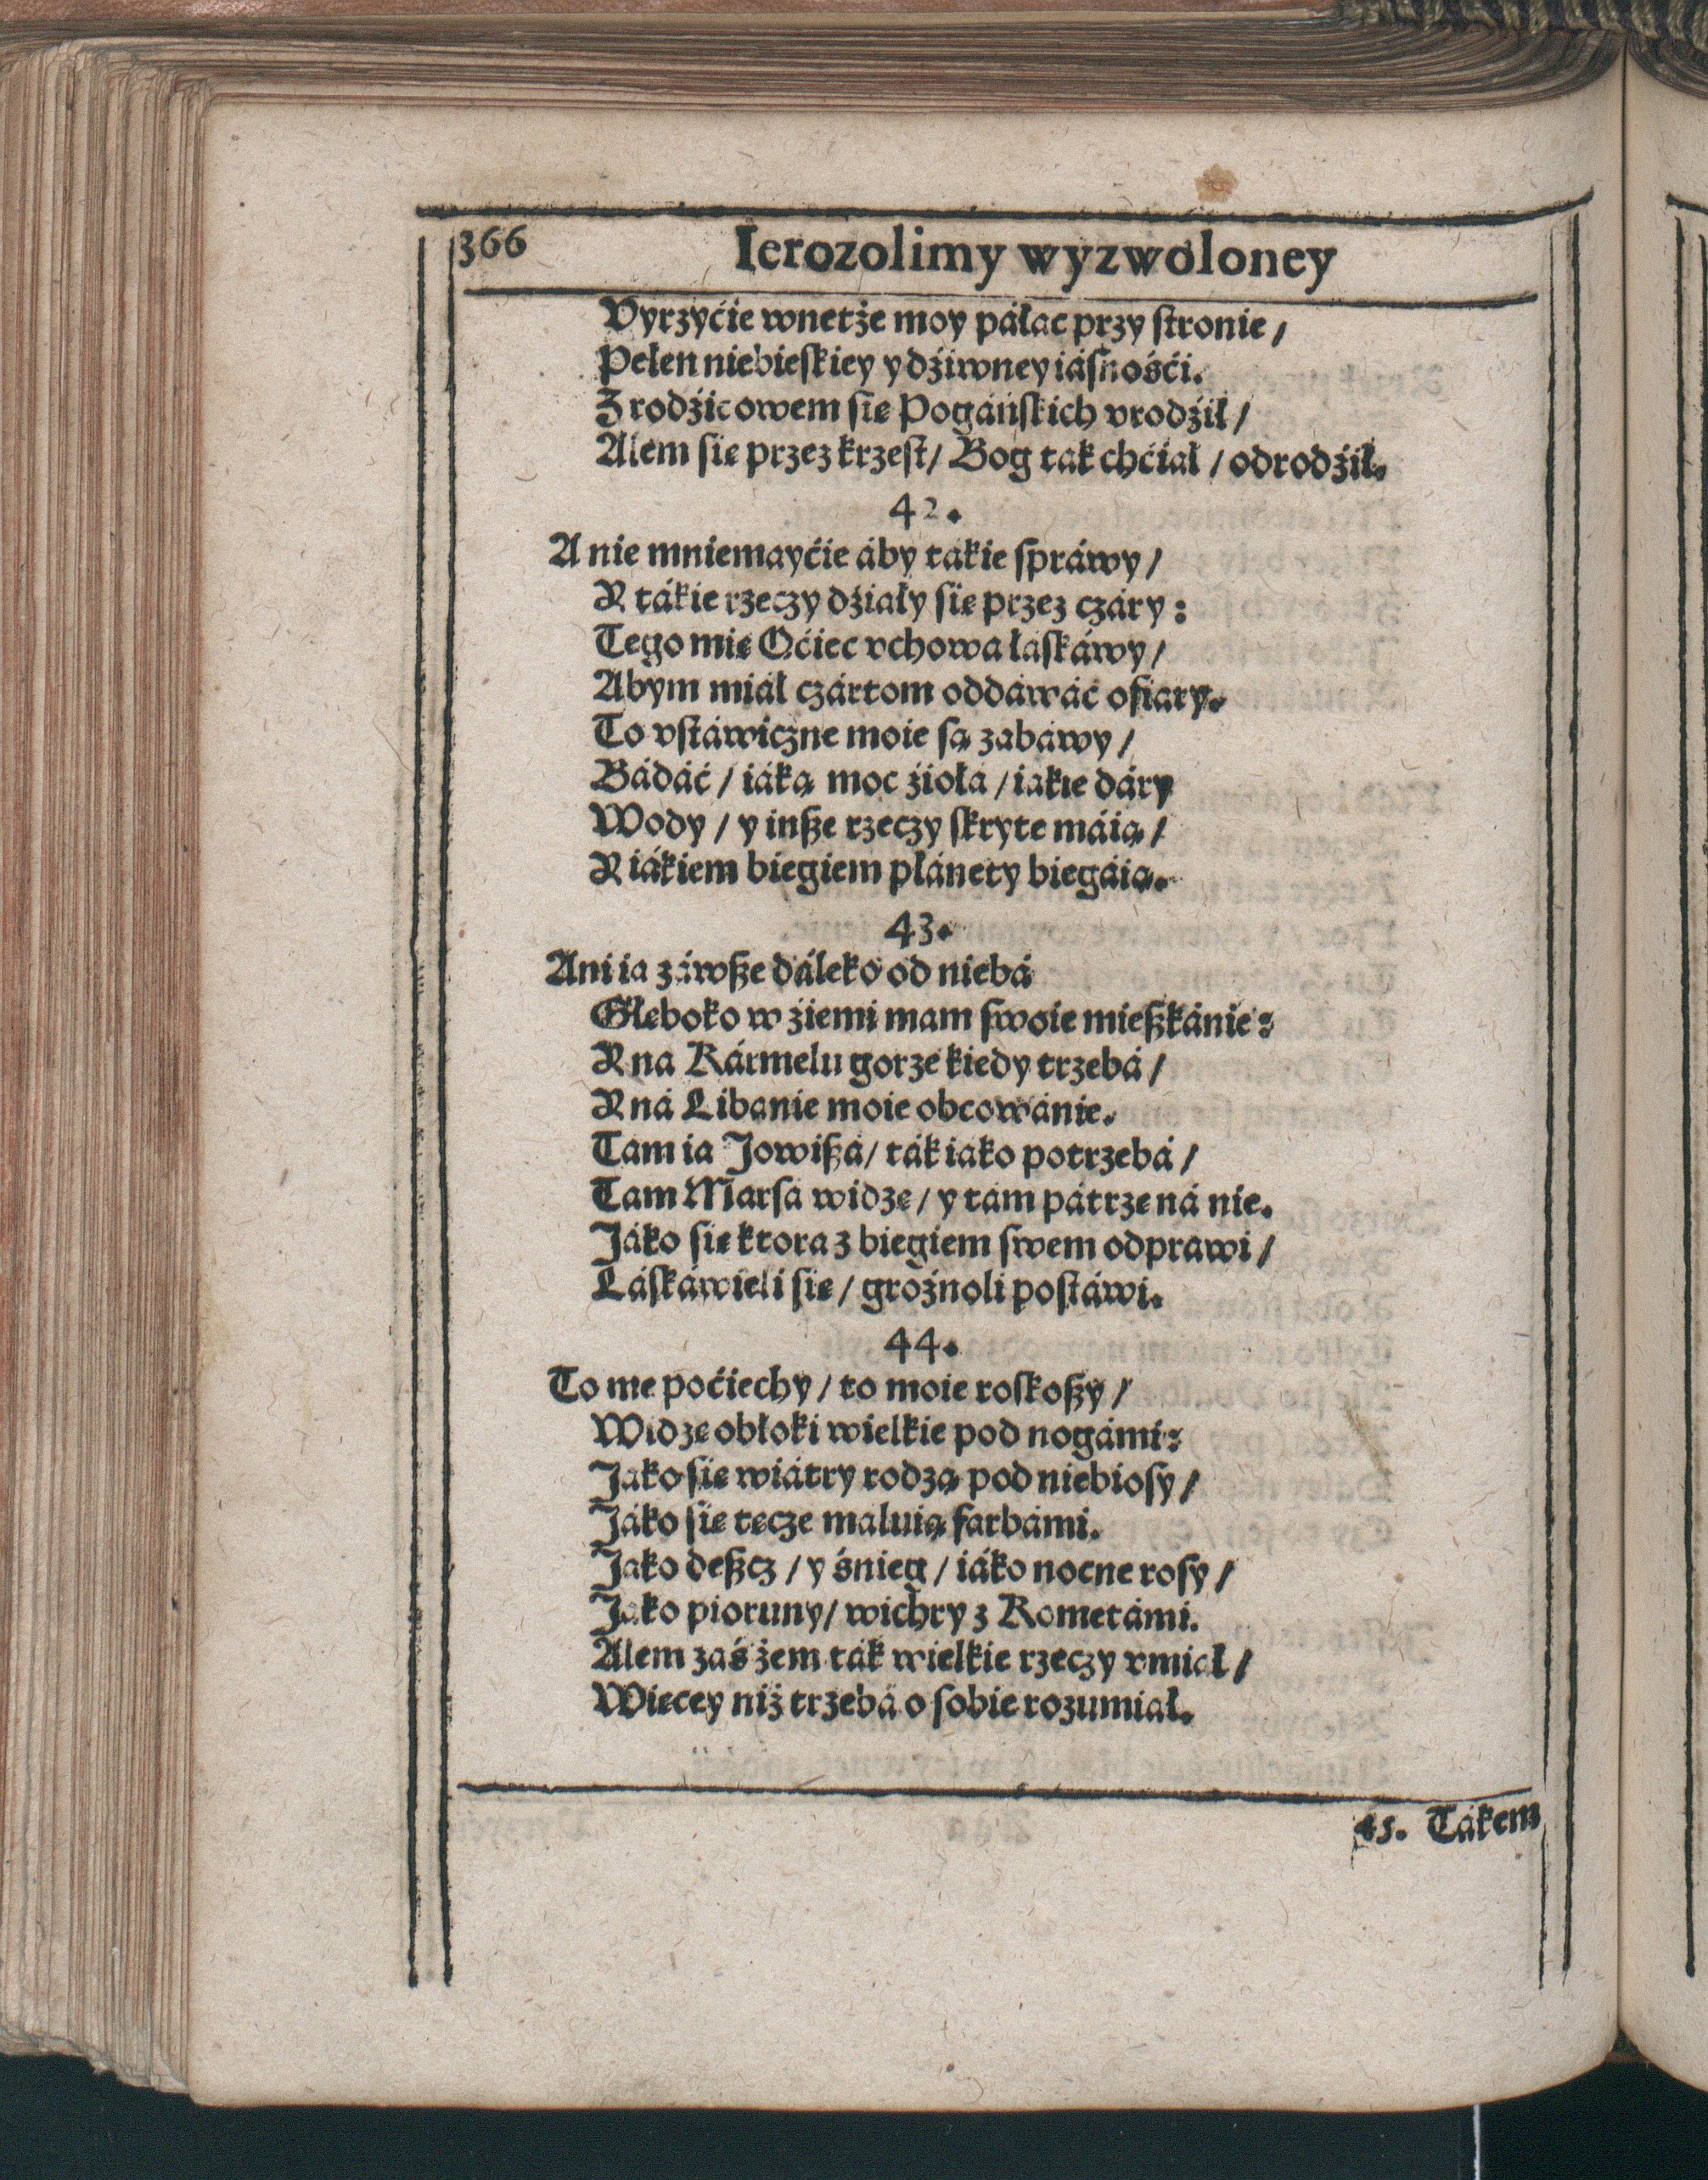 366 Ierozolimy wyzwoloney
Vyrzyćie wnetże moy páłac przy ſtronie /
Pełen niebieſkiey y dźiwney iáſnośći.
Z rodźicowem ſię Pogáńſkich vrodźił /
Alem ſię przez krzeſt / Bog tak chćiał / odrodźił.
42.
A nie mniemayćie áby takie ſpráwy /
Y tákie rzeczy dźiały ſię przez czáry:
Tego mię Oćiec vchowa łáſkáwy /
Abym miał czártom oddáwáć ofiary.
To vſtáwiczne moie ſą zabáwy /
Bádáć / iáką moc źiołá / iakie dáry
Wody / y inſze rzeczy ſkryte máią /
Y iákiem biegiem plánety biegáią.
43.
Ani ia záwſze dáleko od niebá
Głęboko w źiemi mam ſwoie mieſzkánie:
Y na Kármelu gorze kiedy trzebá /
Y ná Libanie moie obcowánie.
Tam ia Jowiſzá / ták iako potrzebá /
Tam Marſá widzę / y tám pátrzę ná nie.
Jáko ſię ktora z biegiem ſwem odprawi /
Láſkáwieli ſię / groźnoli poſtáwi.
44.
To me poćiechy / to moie roſkoſzy /
Widzę obłoki wielkie pod nogámi:
Jako ſię wiátry rodzą pod niebioſy /
Jáko ſię tęcze maluią farbámi.
Jako deſzcz / y śnieg / iáko nocne roſy /
Jako pioruny / wichry z Kometámi.
Alem záś żem ták wielkie rzeczy vmiał /
Więcey niż trzebá o ſobie rozumiał.
45. Tákem